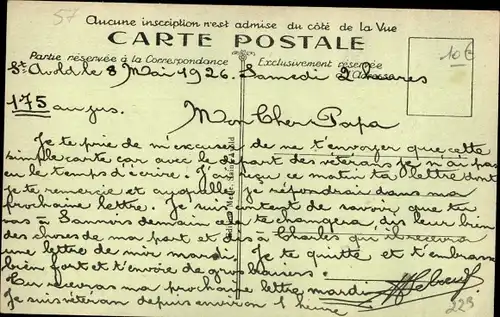 57
Aucune inscription n'est admise du côté de la Vue
CARTE POSTALE
Partie réservée à la Correspondance
Exclusivement réservée
10€
St Avold le 8 Mai 1926. Samedi 2 heures
175 au jus.
Mon Cher Papa
Je te prie de m'excuser de ne t'envoyer que cette
simple carte car avec le départ des vétérans je n'ai pas
eu le temps d'écrire. J'ai reçu ce matin ta lettre dont
je te remercie et à laquelle je répondrai dans ma
prochaine lettre. Je suis content de savoir que tu
vas à Sannois demain ce te changera, dis leur bien
des choses de ma part et dis à Charles qu'il recevra
une lettre de moi mardi. Je te quitte et t'embrasse
bien fort et t'envoie de gros baisers.
Tu recevras ma prochaine lettre mardi
Je suis vétéran depuis environ 1 heure
229